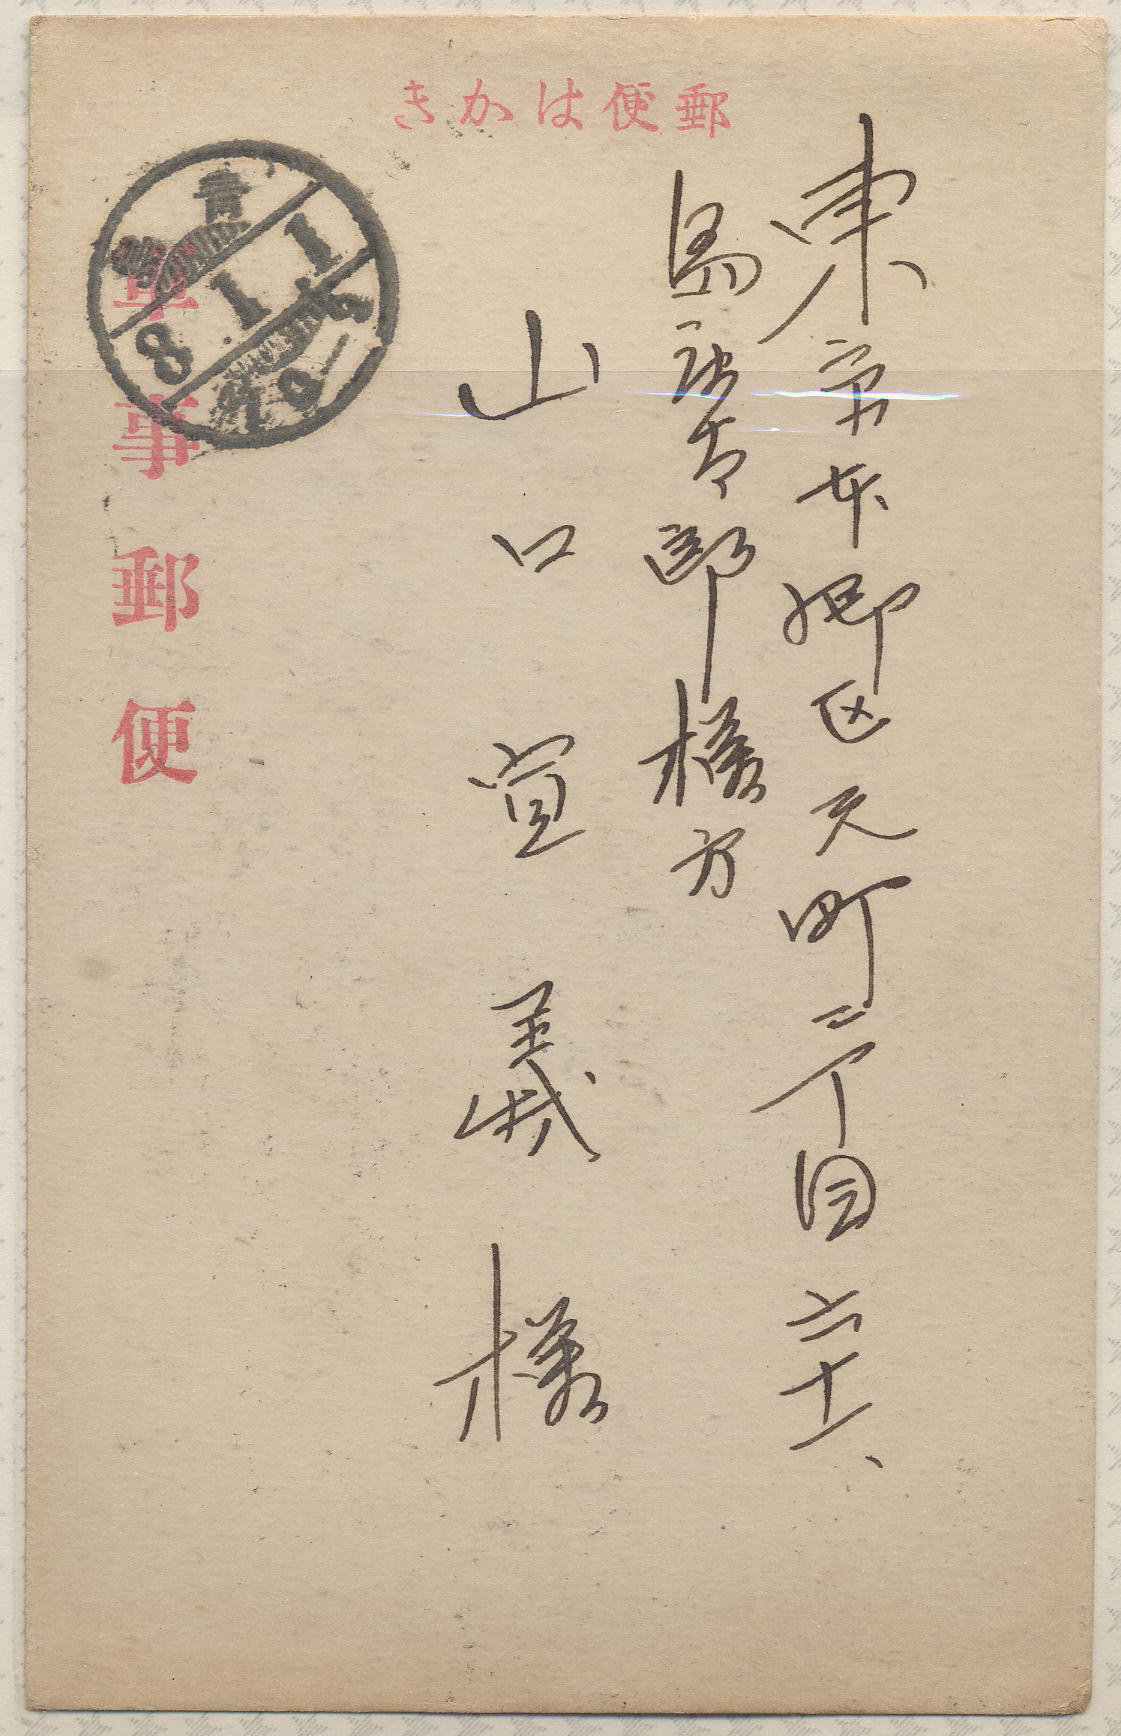 郵便はかき
東京本郷区元町二丁目六十六、
馬 太郎様方
山口宣義様
軍事郵便
青
8.1.1